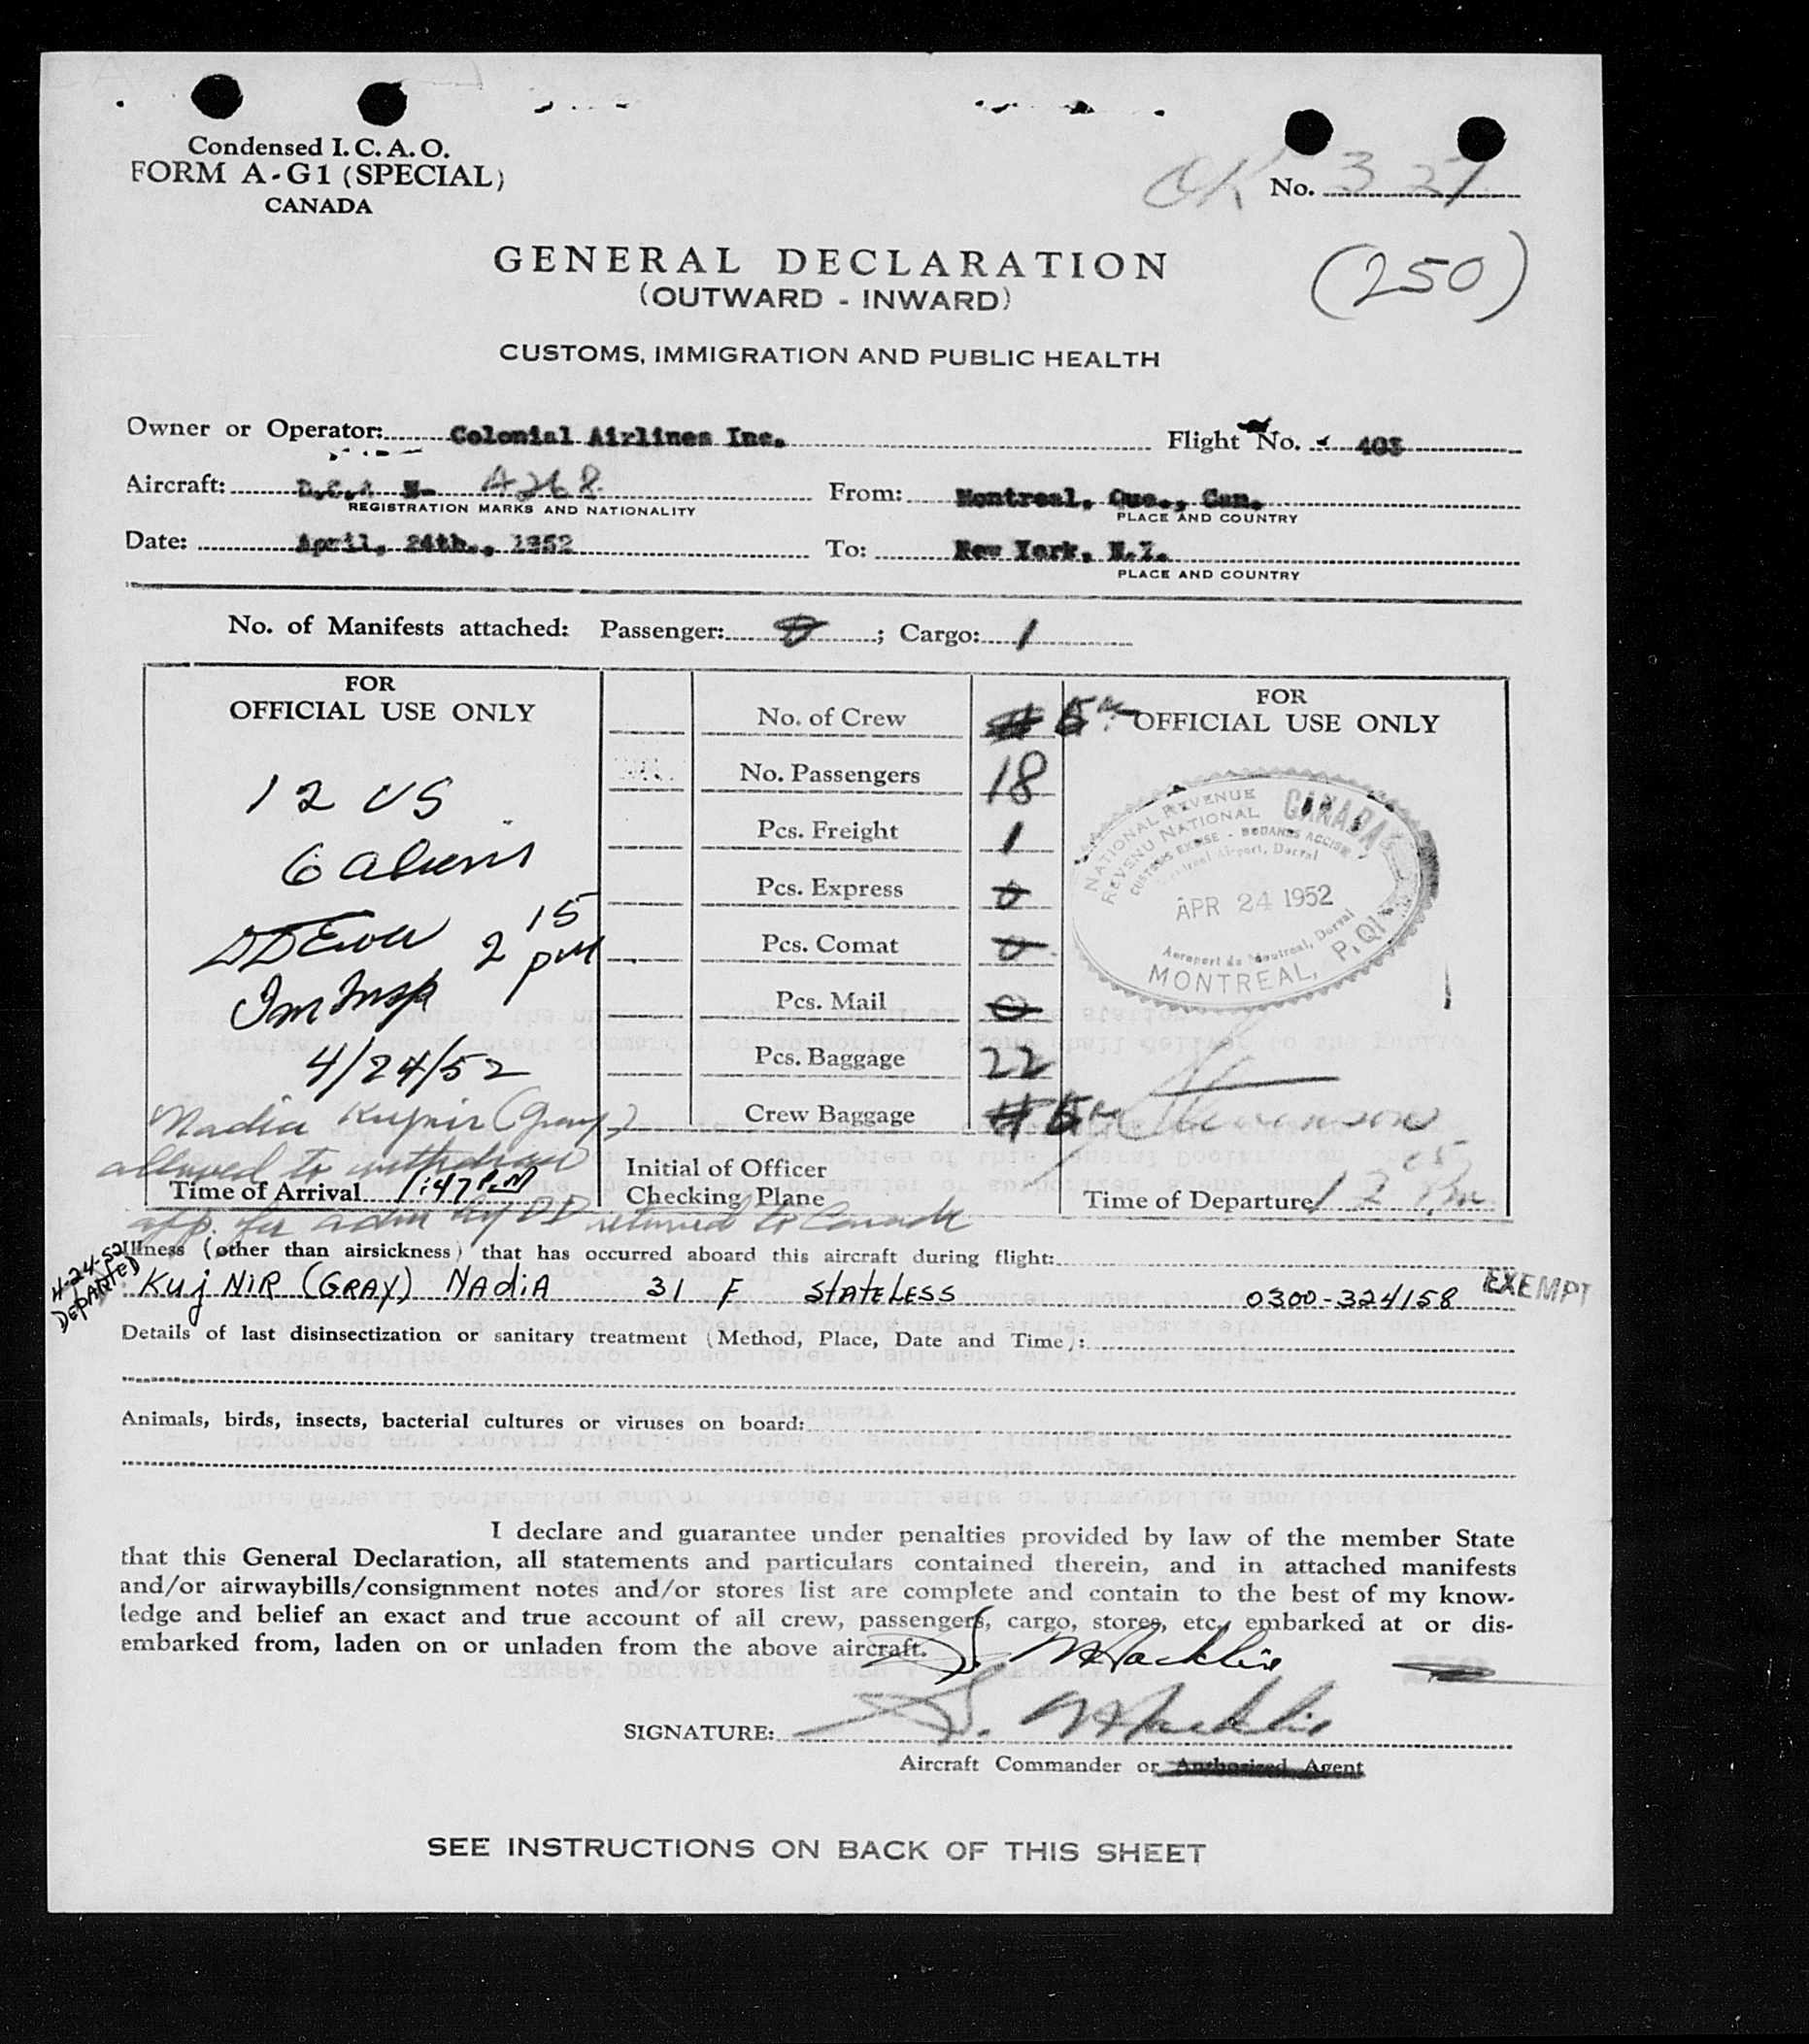 Condensed I.C.A.O.
FORM A-G1 (SPECIAL)
CANADA
OK No. 3 27
(250)
GENERAL DECLARATION
(OUTWARD - INWARD)
CUSTOMS, IMMIGRATION AND PUBLIC HEALTH
Owner or Operator: Colonial Airlines Inc. Flight No. 403
Aircraft: A268 From: Montreal, Que., Can.
REGISTRATION MARKS AND NATIONALITY PLACE AND COUNTRY
Date: April, 24th., 1952 To: New York, N.Y.
PLACE AND COUNTRY
No. of Manifests attached: Passenger: 0; Cargo: 1
FOR
OFFICIAL USE ONLY
12 US
6 aliens
2 15 pM
Im Insp
4/24/52
Nadia Kujnir (Gray)
allowed to withdraw
Time of Arrival 1:47 PM
app. for adm by DD returned to Canada
No. of Crew 5
No. Passengers 18
Pcs. Freight 1
Pcs. Express 0
Pcs. Comat 0
Pcs. Mail 0
Pcs. Baggage 22
Crew Baggage 5
Initial of Officer
Checking Plane
FOR
OFFICIAL USE ONLY
NATIONAL REVENUE CANADA
REVENU NATIONAL
CUSTOMS EXCISE - DOUANES ACCISE
Montreal Airport, Dorval
APR 24 1952
Aeroport de Montreal, Dorval
MONTREAL, P.Q.
Stevenson
Time of Departure 12 05 Pm
Illness (other than airsickness) that has occurred aboard this aircraft during flight:
4-24-52
DEPARTED
KujNIR (GRAY) NAdiA 31 F StAtELESS 0300-324158 EXEMPT
Details of last disinsectization or sanitary treatment (Method, Place, Date and Time):
Animals, birds, insects, bacterial cultures or viruses on board:
I declare and guarantee under penalties provided by law of the member State
that this General Declaration, all statements and particulars contained therein, and in attached manifests
and/or airwaybills/consignment notes and/or stores list are complete and contain to the best of my know-
ledge and belief an exact and true account of all crew, passengers, cargo, stores, etc., embarked at or dis-
embarked from, laden on or unladen from the above aircraft.
SIGNATURE:
Aircraft Commander or Authorized Agent
SEE INSTRUCTIONS ON BACK OF THIS SHEET